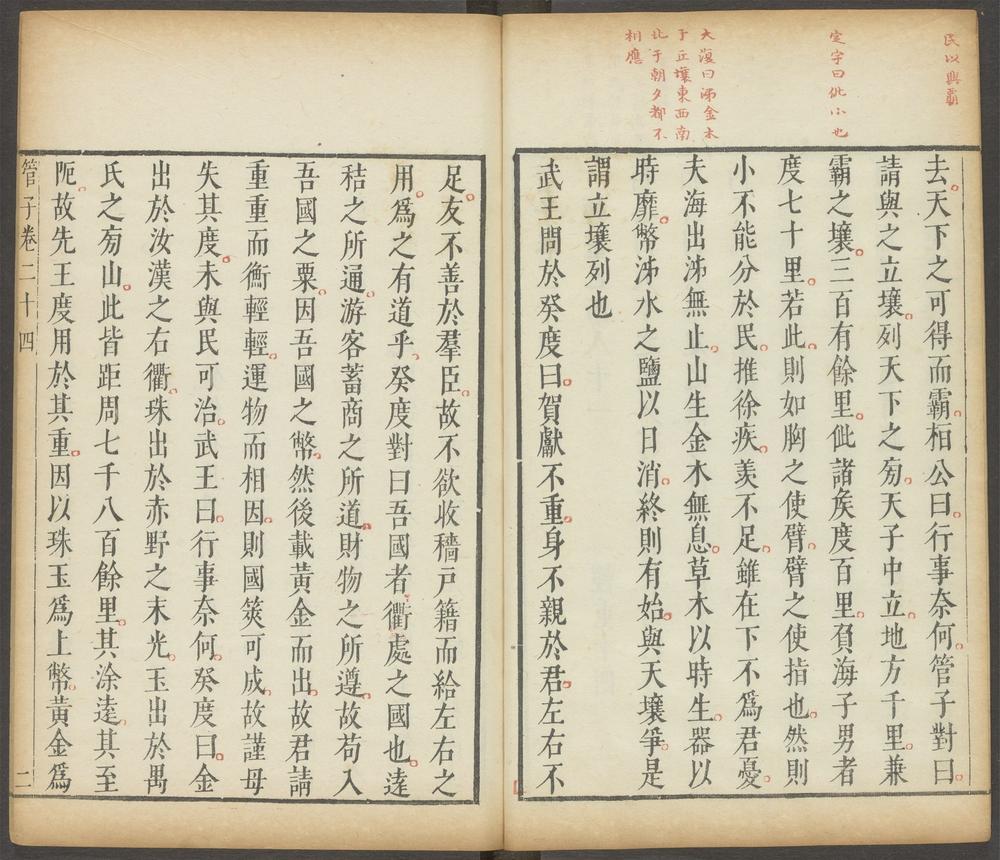 民以興霸
定宇曰仳小也
大復曰洂金木
于立壤東西南
北于朝夕都不
相應
去天下之可得而霸桓公曰行事奈何管子對曰
請與之立壤列天下之旁天子中立地方千里兼
霸之壤三百有餘里仳諸矦度百里負海子男者
度七十里若此則如胸之使臂臂之使指也然則
小不能分於民推徐疾羨不足雖在下不爲君憂
夫海出泲無止山生金木無息草木以時生器以
時靡幣泲水之鹽以日消終則有始與天壤爭是
謂立壤列也
武王問於癸度曰賀獻不重身不親於君左右不
足友不善於羣臣故不欲收穡戸籍而給左右之
用爲之有道乎癸度對曰吾國者衢處之國也遠
秸之所通游客蓄商之所道財物之所遵故苟入
吾國之粟因吾國之幣然後載黃金而出故君請
重重而衡輕輕運物而相因則國筴可成故謹毋
失其度未與民可治武王曰行事奈何癸度曰金
出於汝漢之右衢珠出於赤野之末光玉出於禺
氏之旁山此皆距周七千八百餘里其涂遠其至
阨故先王度用於其重因以珠玉爲上幣黃金爲
管子卷二十四
二